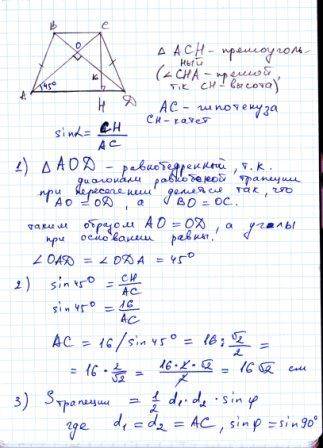 B C
O
K
45°
A H D
△ ACH - прямоуголь-
ный
(∠CHA - прямой,
т.к CH - высота)
AC - гипотенуза
CH - катет
sinα = CH/AC
1) △ AOD - равнобедренный, т.к.
диагонали равнобокой трапеции
при пересечении делятся так, что
AO = OD, а BO = OC.
таким образом AO = OD, а углы
при основании равны.
∠OAD = ∠ODA = 45°
2) sin 45° = CH/AC
sin 45° = 16/AC
AC = 16/sin 45° = 16 : √2/2 =
= 16 · 2/√2 = 16 · 2 · √2/2 = 16√2 см
3) Sтрапеции = 1/2 d₁ · d₂ · sin φ
где d₁ = d₂ = AC, sin φ = sin 90°